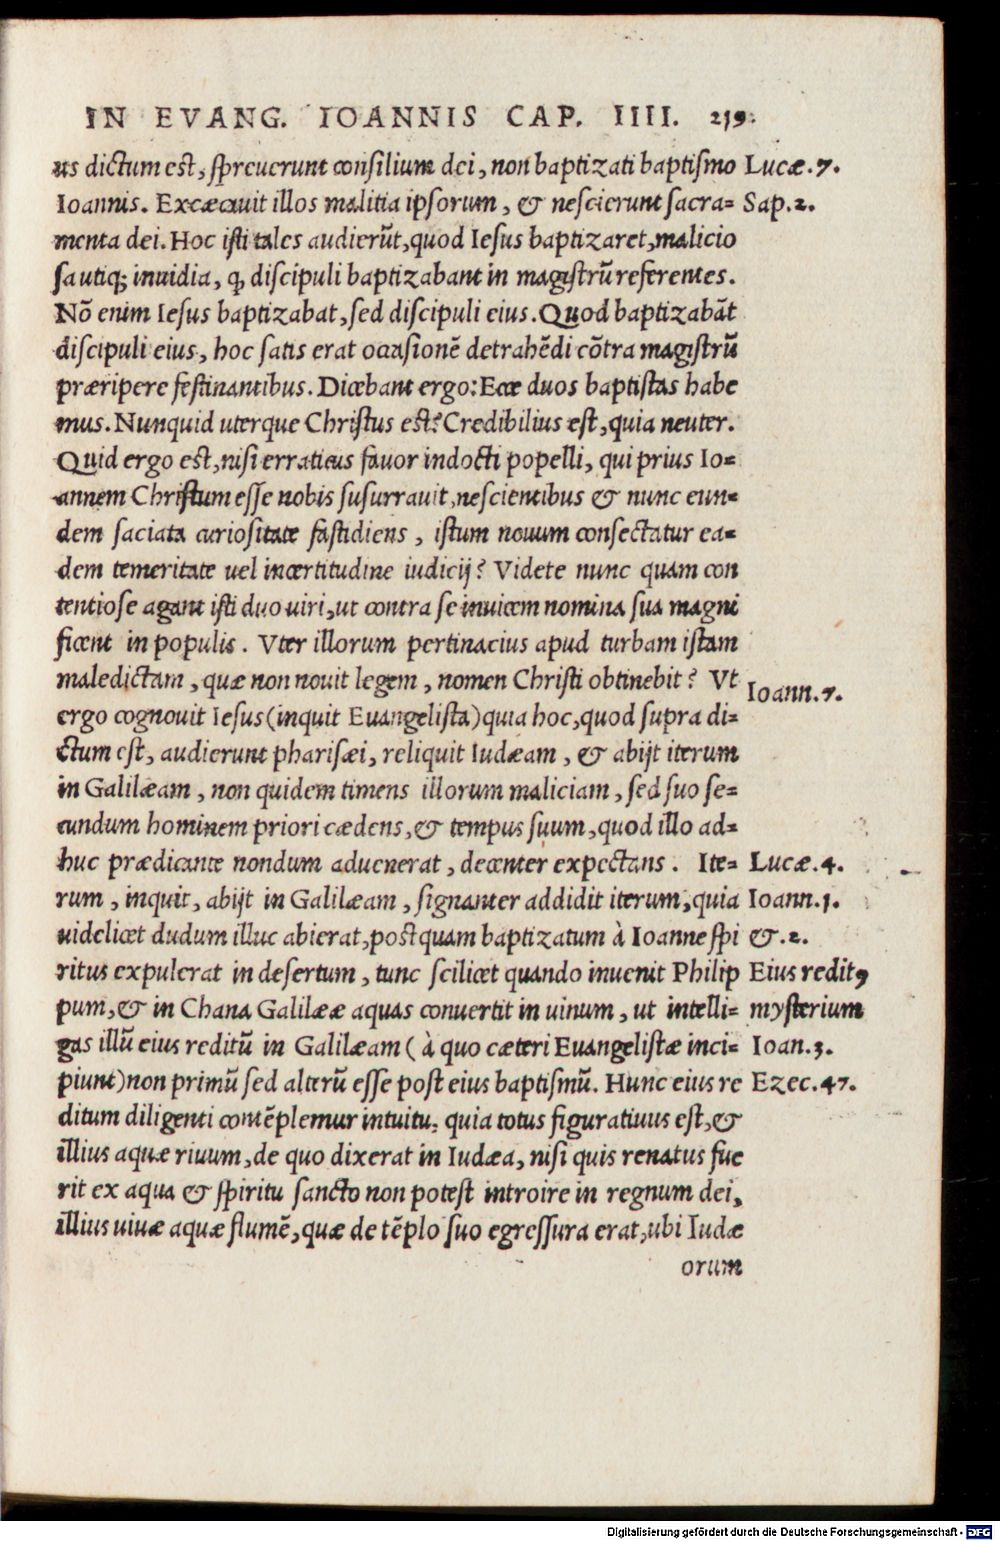 IN EVANG. IOANNIS CAP. IIII. 219.
us dictum est, spreuerunt consilium dei, non baptizati baptismo Lucæ.7.
Ioannis. Excæcauit illos malitia ipsorum, & nescierunt sacra= Sap.2.
menta dei. Hoc isti tales audierũt, quod Iesus baptizaret, malicio
sa utiqꝫ inuidia, ꝙ discipuli baptizabant in magistrũ referentes.
Nõ enim Iesus baptizabat, sed discipuli eius. Quod baptizabãt
discipuli eius, hoc satis erat occasionẽ detrahẽdi cõtra magistrũ
præripere festinantibus. Dicebant ergo: Ecce duos baptistas habe
mus. Nunquid uterque Christus est? Credibilius est, quia neuter.
Quid ergo est, nisi erraticus fauor indocti popelli, qui prius Io=
annem Christum esse nobis susurrauit, nescientibus & nunc eun=
dem saciata curiositate fastidiens, istum nouum consectatur ea=
dem temeritate uel incertitudine iudicij? Videte nunc quam con
tentiose agant isti duo uiri, ut contra se inuicem nomina sua magni
ficent in populis. Vter illorum pertinacius apud turbam istam
maledictam, quæ non nouit legem, nomen Christi obtinebit? Vt Ioann.7.
ergo cognouit Iesus (inquit Euangelista) quia hoc, quod supra di=
ctum est, audierunt pharisæi, reliquit Iudæam, & abijt iterum
in Galilæam, non quidem timens illorum maliciam, sed suo se=
cundum hominem priori cædens, & tempus suum, quod illo ad=
huc prædicante nondum aduenerat, decenter expectans. Ite= Lucæ.4.
rum, inquit, abijt in Galilæam, signanter addidit iterum, quia Ioann.1.
uidelicet dudum illuc abierat, postquam baptizatum à Ioanne spi &.2.
ritus expulerat in desertum, tunc scilicet quando inuenit Philip Eius reditꝰ
pum, & in Chana Galilææ aquas conuertit in uinum, ut intelli= mysterium
gas illũ eius reditũ in Galilæam (à quo cæteri Euangelistæ inci= Ioan.3.
piunt) non primũ sed alterũ esse post eius baptismũ. Hunc eius re Ezec.47.
ditum diligenti contẽplemur intuitu: quia totus figuratiuus est, &
illius aquæ riuum, de quo dixerat in Iudæa, nisi quis renatus fue
rit ex aqua & spiritu sancto non potest introire in regnum dei,
illius uiuæ aquæ flumẽ, quæ de tẽplo suo egressura erat, ubi Iudæ
orum
Digitalisierung gefördert durch die Deutsche Forschungsgemeinschaft - DFG